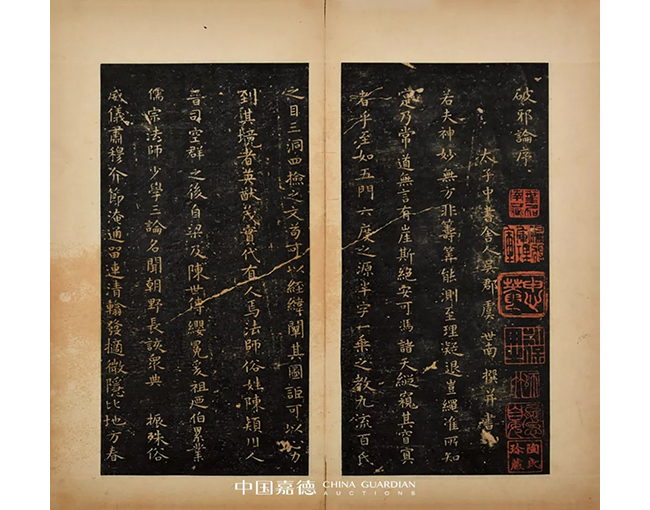 破邪論序
太子中書舍人吳郡虞世南撰并書
若夫神妙無方非籌筭能測至理凝邈豈繩准所知
寔乃常道無言有崖斯絕安可馮諸天縱窺其窅冥
者乎至如五門六度之源半字一乘之教九流百氏
之目三洞四檢之文苟可以經緯闡其圖詎可以心力
到其境者英猷茂實代有人焉法師俗姓陳潁川人
晉司空群之後自梁及陳世傳纓冕爰祖迺伯累業
儒宗法師少學三論名聞朝野長該衆典 振殊俗
威儀肅穆介節淹通留連清翰發擿微隱比地方春
陶氏珍藏
中国嘉德 CHINA GUARDIAN
AUCTIONS